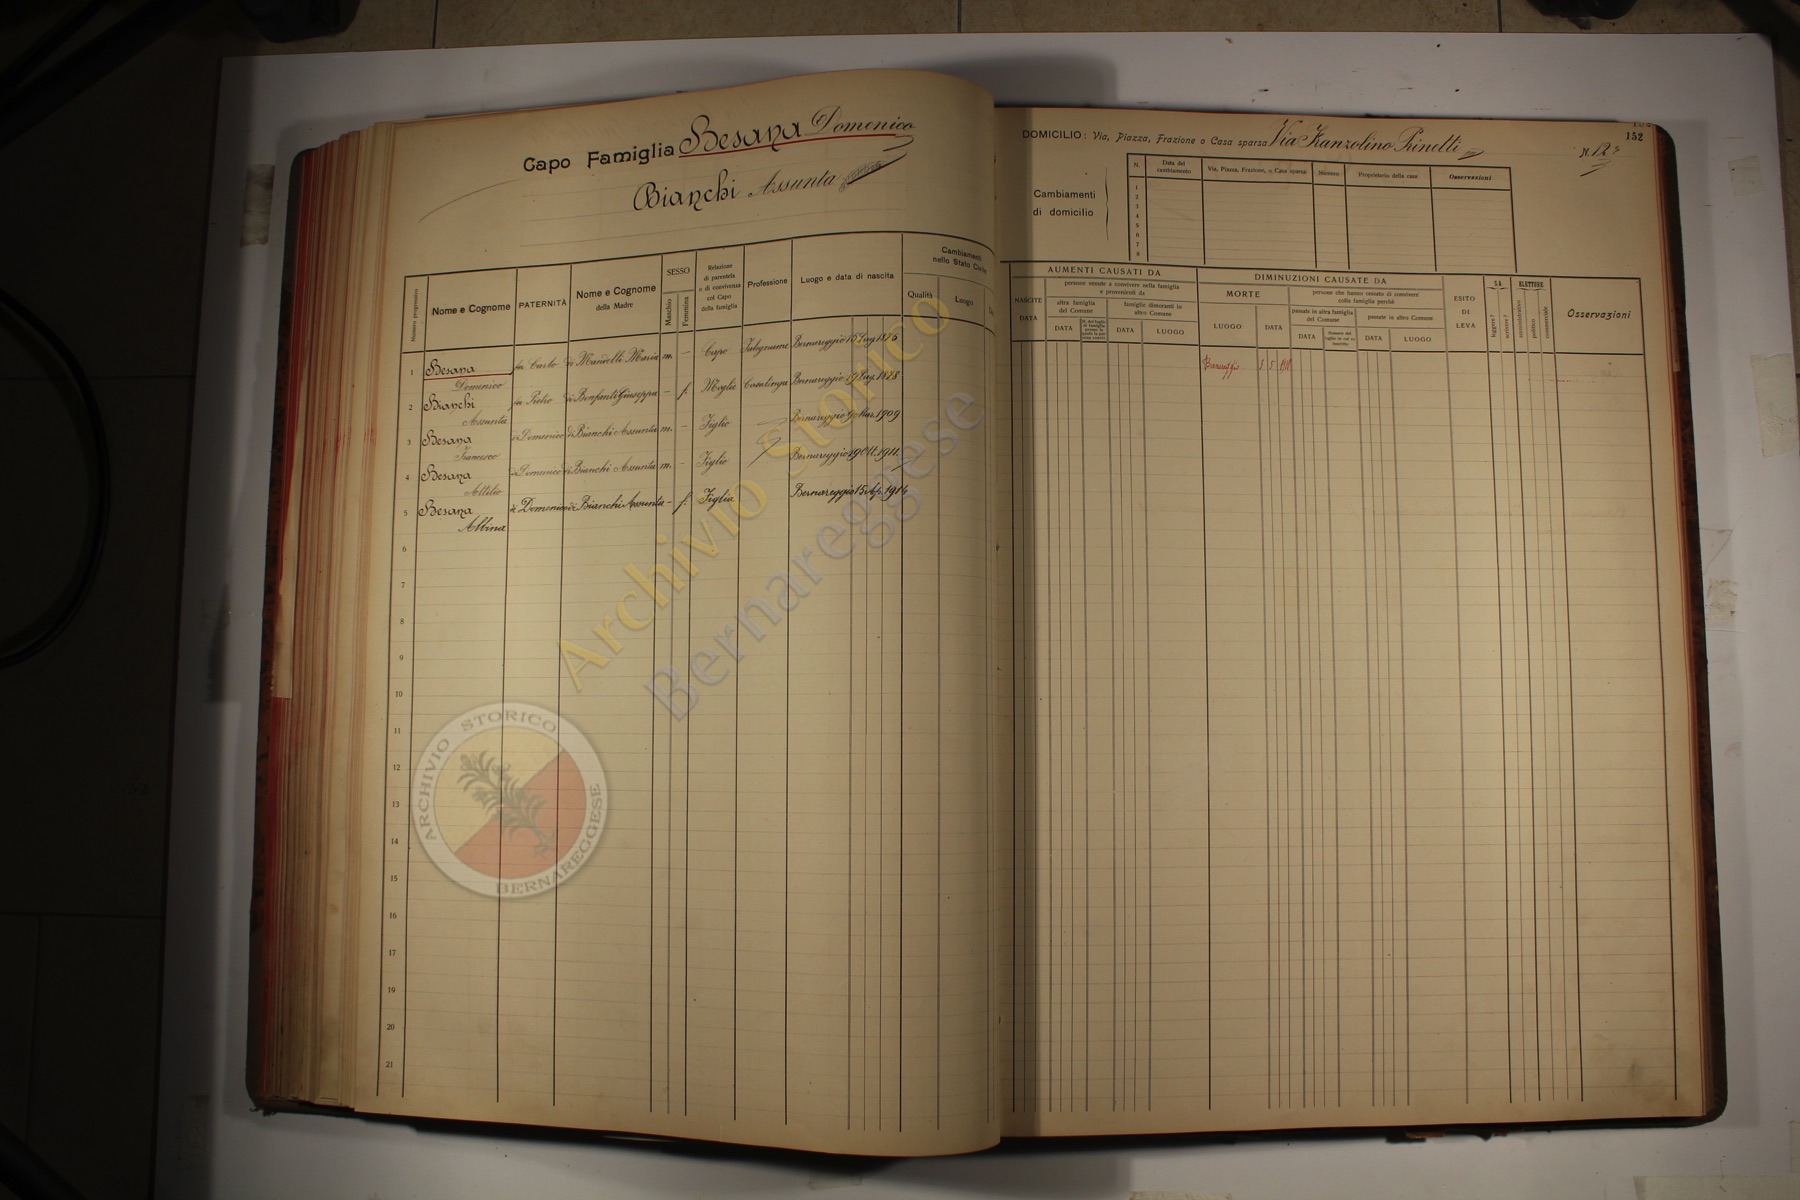 Capo Famiglia Besana Domenico
Bianchi Assunta
Numero progressivo
Nome e Cognome
PATERNITÀ
Nome e Cognome della Madre
SESSO
Maschio
Femmina
Relazione di parentela o di convivenza col Capo della famiglia
Professione
Luogo e data di nascita
Cambiamenti
nello Stato Civile
Qualità
Luogo
1 Besana Domenico fu Carlo di Mandelli Maria m. - Capo Bernareggio 1876
2 Bianchi Assunta fu Pietro di Bonfanti Giuseppa - f. Moglie Casalinga Bernareggio 1878
3 Besana Francesco di Domenico di Bianchi Assunta m. - Figlio Bernareggio 9 Mar. 1909
4 Besana Attilio di Domenico di Bianchi Assunta m. - Figlio Bernareggio 19 Ott. 1911
5 Besana Albina di Domenico di Bianchi Assunta - f. Figlia Bernareggio 15 Ap. 1914
6
7
8
9
10
11
12
13
14
15
16
17
18
19
20
21
152
DOMICILIO: Via, Piazza, Frazione o Casa sparsa Via Franzolino Prinetti N. 12
Cambiamenti
di domicilio
N.
Data del cambiamento
Via, Piazza, Frazione, o Casa sparsa
Numero
Proprietario della casa
Osservazioni
1
2
3
4
5
6
7
8
AUMENTI CAUSATI DA
NASCITE
DATA
persone venute a convivere nella famiglia
e provenienti da
altra famiglia
del Comune
DATA
famiglie dimoranti in
altro Comune
DATA
LUOGO
DIMINUZIONI CAUSATE DA
MORTE
LUOGO
DATA
persone che hanno cessato di convivere
colla famiglia perchè
passate in altra famiglia
del Comune
DATA
passate in altro Comune
DATA
LUOGO
ESITO
DI
LEVA
SA
leggere?
scrivere?
ELETTORE
amministrativo
politico
commerciale
Osservazioni
Bernareggio
Archivio Storico
Bernareggese
ARCHIVIO STORICO
BERNAREGGESE